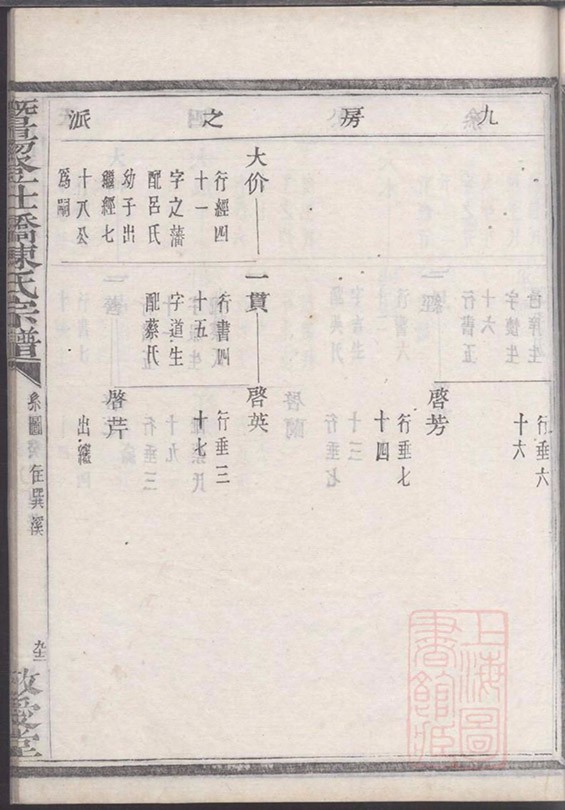 九房之派
行垂六
十六
啓芳
行垂七
十四
大价
行經四
十一
字之藩
配呂氏
幼子出
繼經七
十八公
為嗣
一貫
行書四
十五
字道生
配蔡氏
啓英
行垂三
十七
啓芹
出繼
暨陽登仕橋陳氏宗譜
系圖
在巽溪
敬愛堂
上海圖
書館藏